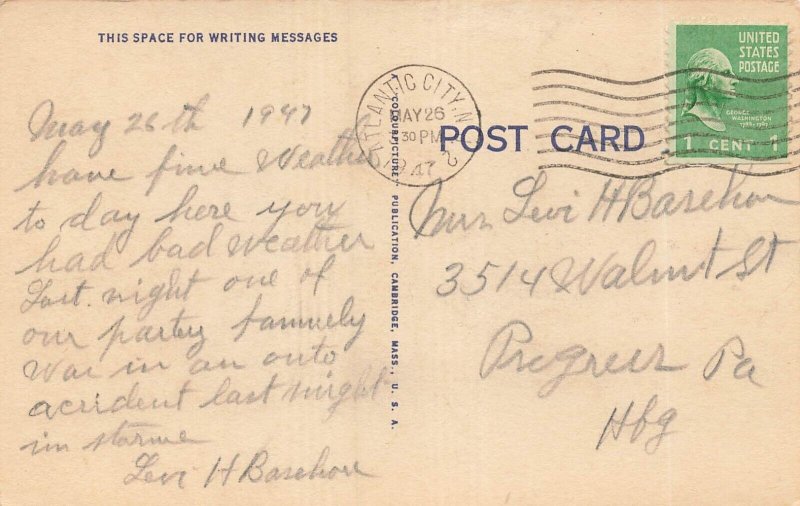 THIS SPACE FOR WRITING MESSAGES
May 26th 1947
have fine Weather
to day here you
had bad Weather
Last. night one of
our partey
Was in an auto
acrident last night
in storme
Levi H Basehore
A COLOURPICTURE PUBLICATION, CAMBRIDGE, MASS., U. S. A.
ATLANTIC CITY, N.J. 2
MAY 26
30 PM
1947
POST CARD
UNITED
STATES
POSTAGE
GEORGE
WASHINGTON
1789-1797
1 CENT 1
Mrs Levi H Basehore
3514 Walnut St
Progress Pa
Hbg